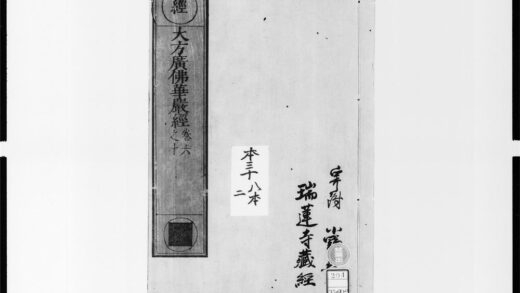 經
大方廣佛華嚴經 卷六之十
本三十八本
二
瑞蓮寺藏經
204